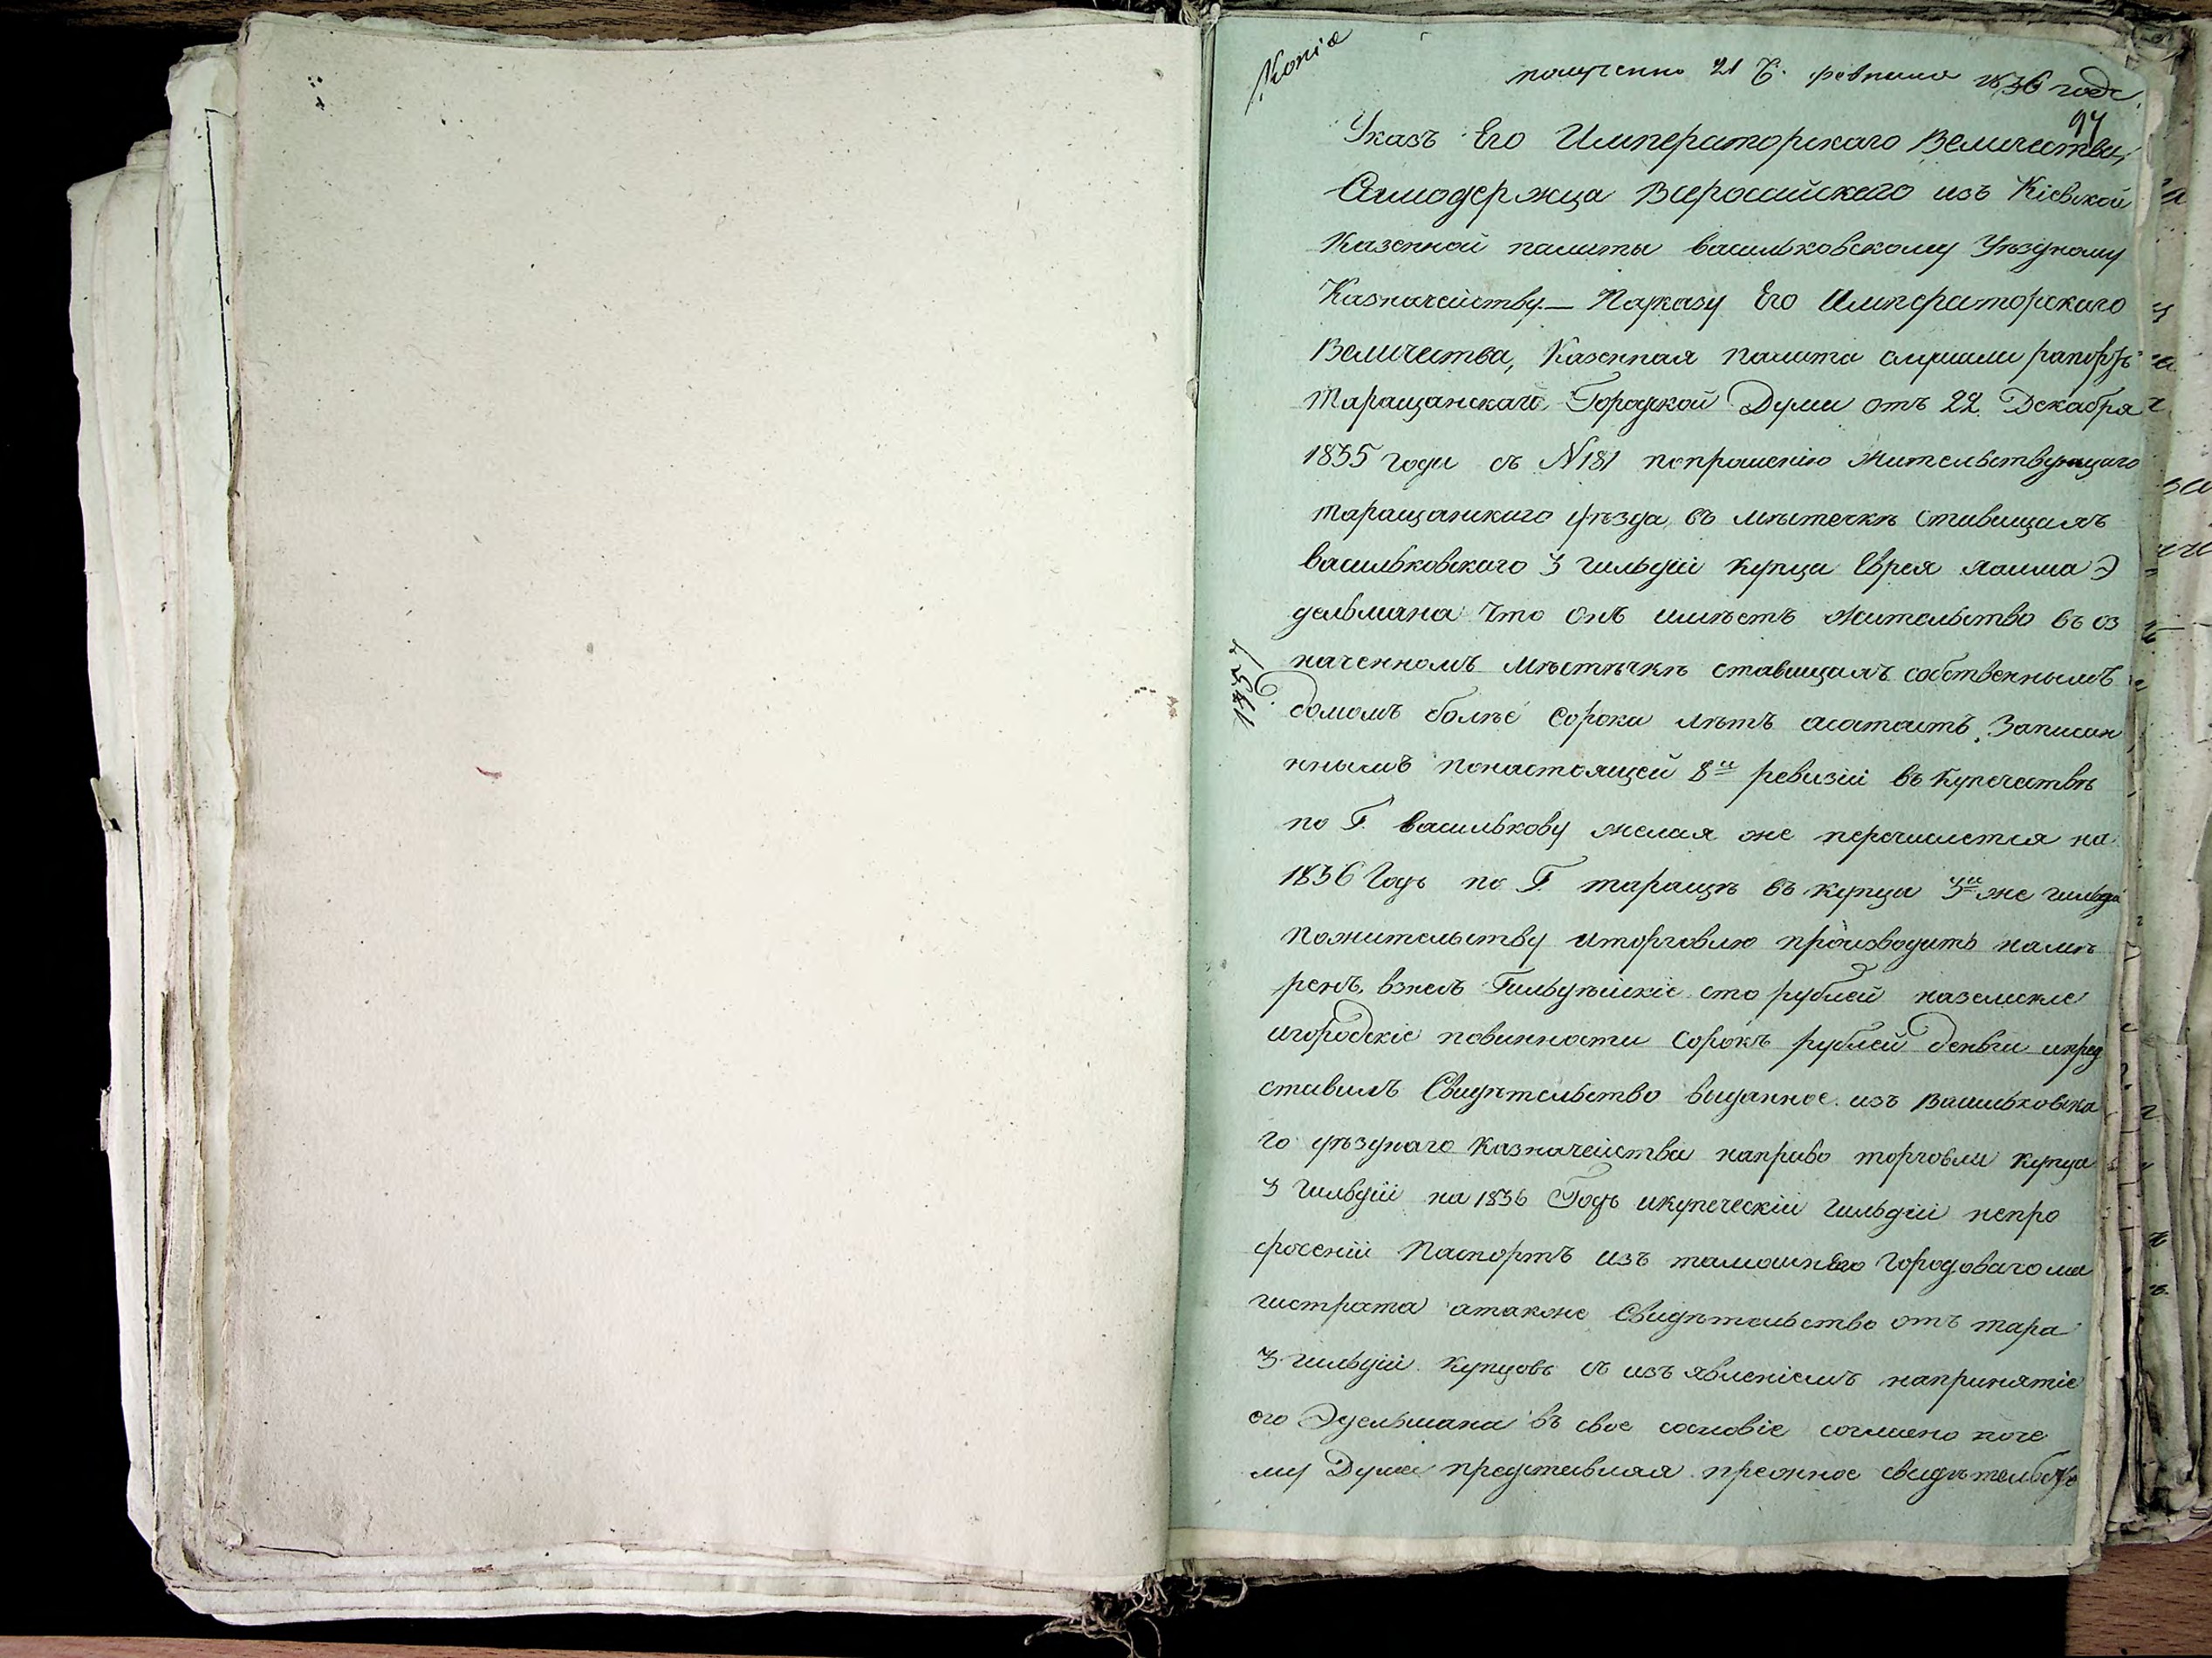 Копія
получено 21 Ч. февраля 1836 года
94
Указъ Его Императорскаго Величества,
Самодержца Всероссийскаго изъ Кіевской
Казенной палаты васильковскому Уѣздному
Казначейству.— Поуказу Его Императорскаго
Величества, Казенная палата слушали рапортъ
Таращанскаго Городской Думы отъ 22 Декабря
1835 года съ №181 попрошенію жительствующаго
таращанскаго уѣзда въ мѣстечкѣ ставищахъ
васильковскаго 3 гильдіи купца Еврея Э
дельмана что онъ имѣетъ жительство въ оз
наченномъ мѣстѣчкѣ ставищахъ собственнымъ
домомъ болѣе сорока лѣтъ асостоитъ Записан
ннымъ понастоящей 8й ревизіи въ купечествѣ
по Г. василькову желая же перечислется на
1836 Годъ по Г таращѣ въ купца 3й же гильдіи
пожительству иторговлю производить намѣ
ренъ, взнесъ Гильдѣйскіе сто рублей наземскіе
игородскіе повинности сорокъ рублей деньги ипред
ставилъ Свидѣтельство выданное изъ Васильковска
го уѣзднаго Казначейства направо торговли купца
3 гильдіи на 1836 Годъ икупеческій гильдіи непро
сроченій Паспортъ изъ тамошнего Городоваго ма
гистрата атакже Свидѣтельство отъ тара
3 гильдіи купцовъ съ изъявленіемъ напринятіе
его Эдельмана въ свое сословіе согласно поче
му Дума представляя преждное свидѣтельство